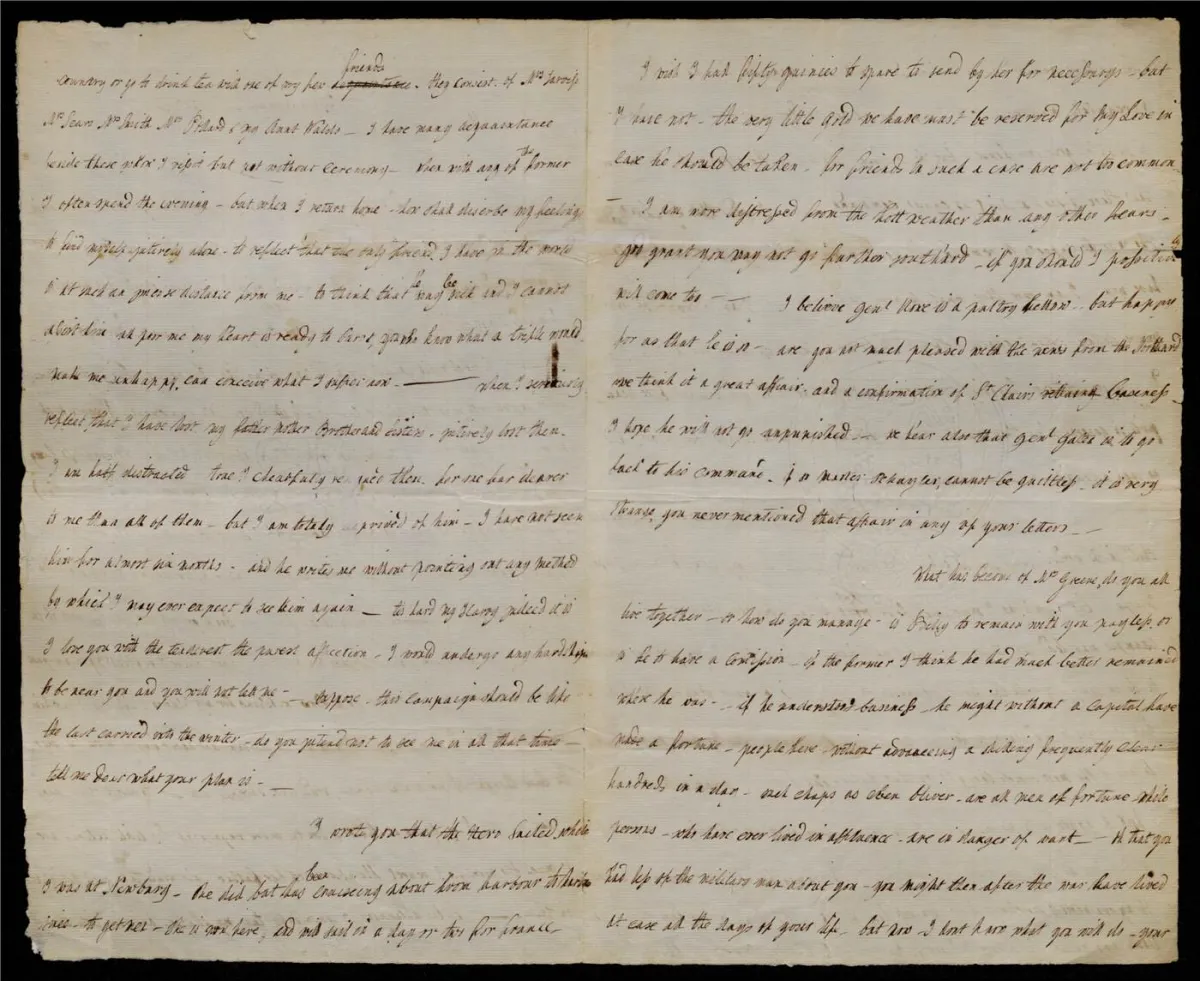 country or go to drink tea with one of my few acquaintance friends. they consist. of Mrs Jarviss
Mrs Sears Mrs Smith Mrs Pollard & my Aunt Waldo — I have many acquaintance
beside these whom I visit but not without ceremony — when with any of the former
I often spend the evening — but when I return home — how shall describe my feelings
to find myself intirely alone — to reflect that the only friend I have in the world
is at such an imense distance from me — to think that he may be sick and I cannot
assist him ah poor me my heart is ready to burst, you who know what a trifle would
make me unhappy, can conceive what I suffer now. — when I seriously
reflect that I have lost my father Mother Brother and Sisters. intirely lost them.
I am half distracted true I chearfully them, for one far dearer
to me than all of them — but I am totaly deprived of him — I have not seen
him for almost six months — and he writes me without pointing out any method
by which I may ever expect to see him again — tis hard my Harry indeed it is
I love you with the tenderest the purest affection — I would undergo any hardships
to be near you and you will not let me — suppose this campaign should be like
the last carried into the winter — do you intend not to see me in all that time —
tell me dear what your plan is —
I wrote you that the Hero sailed, while
I was at Newburg — she did but has been Cruiseing about from harbour to harbour
since — to get men — she is now here, and will sail in a day or two for france —
I wish I had fifty guineas to spare to send by her for necessarys — but
I have not — the very little gold we have must be reserved for my Love in
case he should be taken — for friends in such a case are not too common
— I am more distressed from the hott weather than any other fears —
God grant you may not go further southard — if you should I possitive
will come too — — I believe Genl Howe is a paltry fellow — but happy
for us that he is so — are you not much pleased with the news from the Northard
we think it a great affair — and a confirmation of St Clairs baseness —
I hope he will not go unpunished — we hear also that Genl Gates is to go
back to his command — if so master Schuyler, cannot be guiltless — it is very
strange, you never mentioned that affair in any of your letters —
What has become of Mrs Greene, do you all
live together — or how do you manage — is Billy to remain with you payless, or
is he to have a Comission — if the former I think he had much better remained
where he was — if he understood business — he might without a capital have
made a fortune — people here — without advancing a shilling frequently clear
hundreds in a day — such chaps as Eben Oliver — are all men of fortune while
persons — who have ever lived in affluence — are in danger of want — oh that you
had less of the military man about you — you might then after the war have lived
at ease all the days of your life — but now I dont know what you will do — your